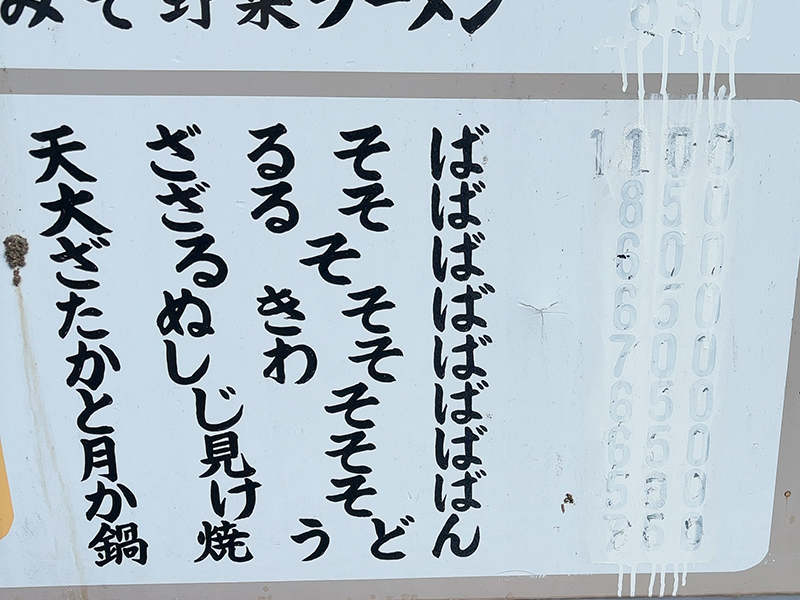 みそ野菜ラーメン 850
天ざるそば 1100
大ざるそば 850
ざるそば 600
たぬきそば 650
かしわそば 700
とじそば 650
月見そば 650
かけそば
鍋焼うどん